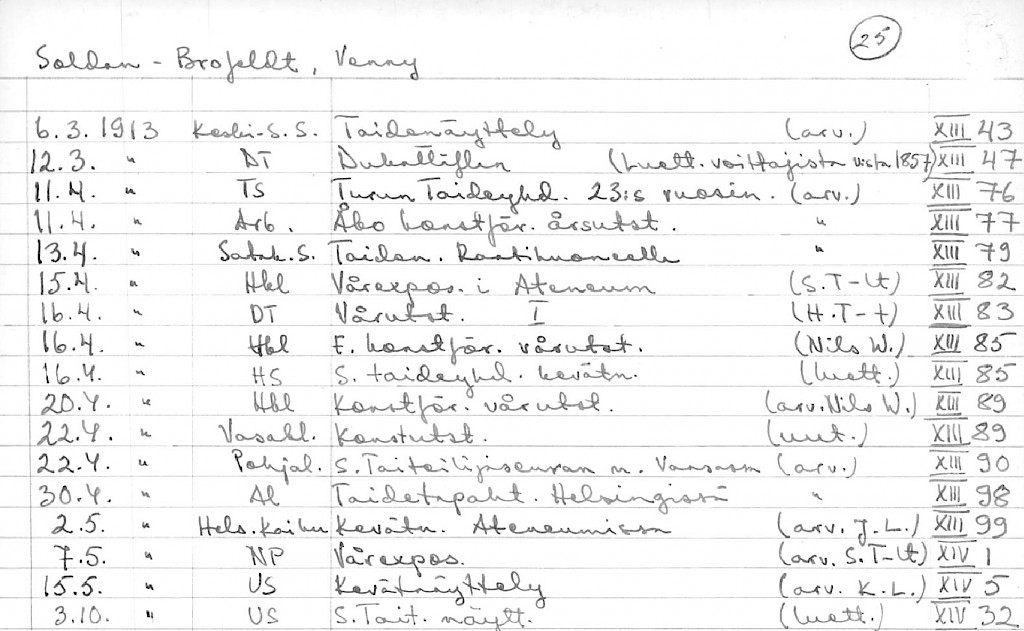 25
Soldan - Brofeldt, Venny
6.3. 1913 Keski-S.S. Taidenäyttely (arv.) XIII 43
12.3. " DT Dukattäflen (luett. voittajista v:sta 1857) XIII 47
11.4. " TS Turun Taideyhd. 23:s vuosin. (arv.) XIII 76
11.4. " Arb. Åbo konstför. årsutst. " XIII 77
13.4. " Satak.S. Taiden. Raatihuoneella " XIII 79
15.4. " Hbl Vårexpos. i Ateneum (S.T-lt) XIII 82
16.4. " DT Vårutst. I (H.T-t) XIII 83
16.4. " Hbl F. konstför. vårutst. (Nils W.) XIII 85
16.4. " HS S. taideyhd. kevätn. (luett.) XIII 85
20.4. " Hbl Konstför. vårutst. (arv. Nils W.) XIII 89
22.4. " Vasabl. Konstutst. (uut.) XIII 89
22.4. " Pohjal. S. Taiteilijaseuran n. Vaasassa (arv.) XIII 90
30.4. " Al Taidetapaht. Helsingissä " XIII 98
2.5. " Hels. Kaiku Kevätn. Ateneumissa (arv. J.L.) XIII 99
7.5. " NP Vårexpos. (arv. S.T-lt) XIV 1
15.5. " US Kevätnäyttely (arv. K.L.) XIV 5
3.10. " US S.Tait. näytt. (luett.) XIV 32